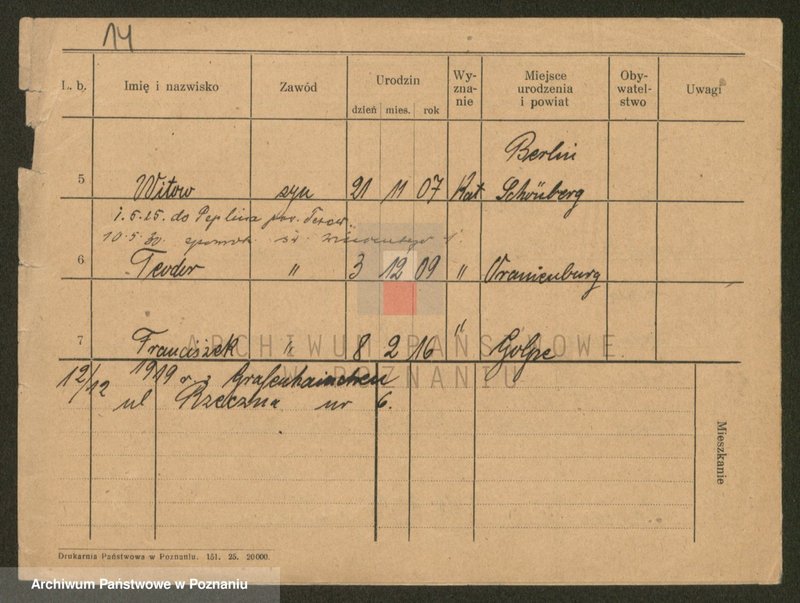 14
L. b. Imię i nazwisko Zawód Urodzin dzień mies. rok Wy-zna-nie Miejsce urodzenia i powiat Oby-watel-stwo Uwagi
Berlin
5 Witow syn 21 11 07 Kat Schönberg
1.5.25. do Peplina pow. Tczew.
10.5.30. św.
6 Teodor " 3 12 09 " Oranienburg
7 Franciszek " 8 2 16 " Golpe
ARCHIWUM PAŃSTWOWE
W POZNANIU
12/12 1919 r. z Grafenhainchen
ul Rzeczna nr 6.
Mieszkanie
Drukarnia Państwowa w Poznaniu. 151. 25. 20000.
Archiwum Państwowe w Poznaniu